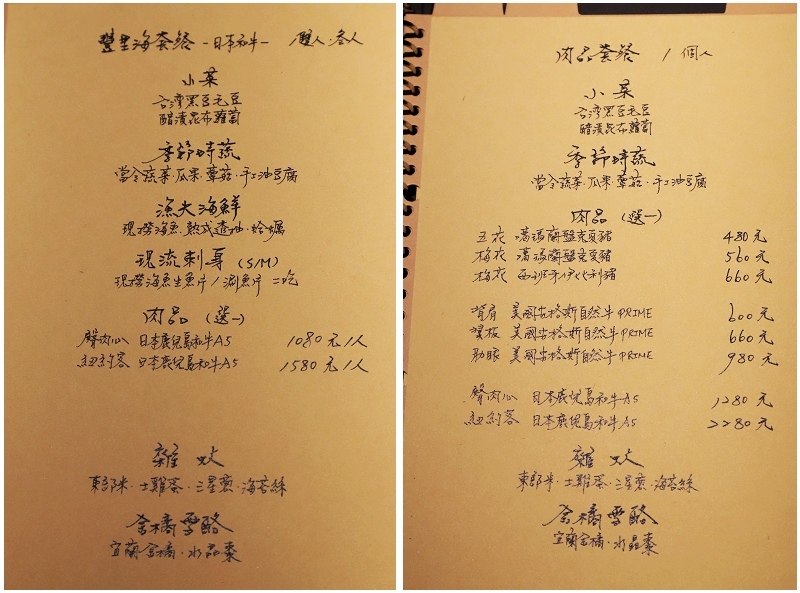 豐生海套餐 -日本和牛- 1個人·多人
小菜
台灣黑豆毛豆
醋漬昆布蘿蔔
季節時蔬
當令蔬菜·瓜果·蕈菇·手工油豆腐
漁夫海鮮
現撈海魚·熟式透抽·蛤蠣
現流刺身 (S/M)
現撈海魚生魚片 / 涮魚片 二吃
肉品 (選一)
臀肉心 日本鹿兒島和牛A5 1080元/人
紐約客 日本鹿兒島和牛A5 1580元/人
雜炊
東部米·土雞蛋·三星蔥·海苔絲
金橘雪酪
宜蘭金橘·水晶棗
肉品套餐 1個人
小菜
台灣黑豆毛豆
醋漬昆布蘿蔔
季節時蔬
當令蔬菜·瓜果·蕈菇·手工油豆腐
肉品 (選一)
五花 鹽麴麥豬 480元
梅花 鹽麴麥豬 560元
梅花 西班牙伊比利豬 660元
背肩 美國安格斯自然牛PRIME 600元
翼板 美國安格斯自然牛PRIME 660元
肋眼 美國安格斯自然牛PRIME 980元
臀肉心 日本鹿兒島和牛A5 1280元
紐約客 日本鹿兒島和牛A5 2280元
雜炊
東部米·土雞蛋·三星蔥·海苔絲
金橘雪酪
宜蘭金橘·水晶棗